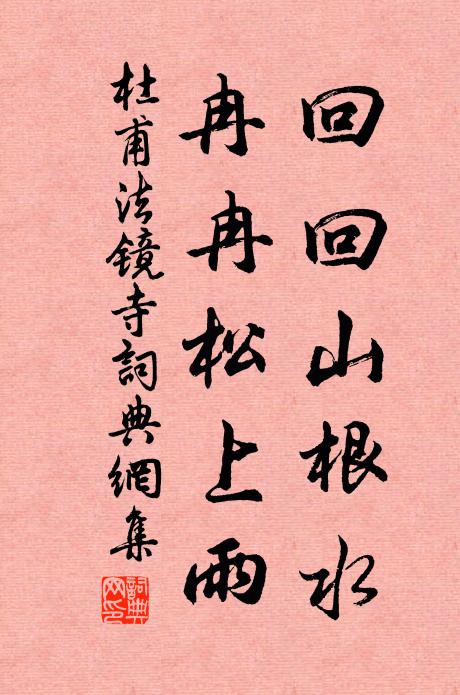 回回山根水
冉冉松上雨
杜甫法鏡寺詞典網集
詞典
网印